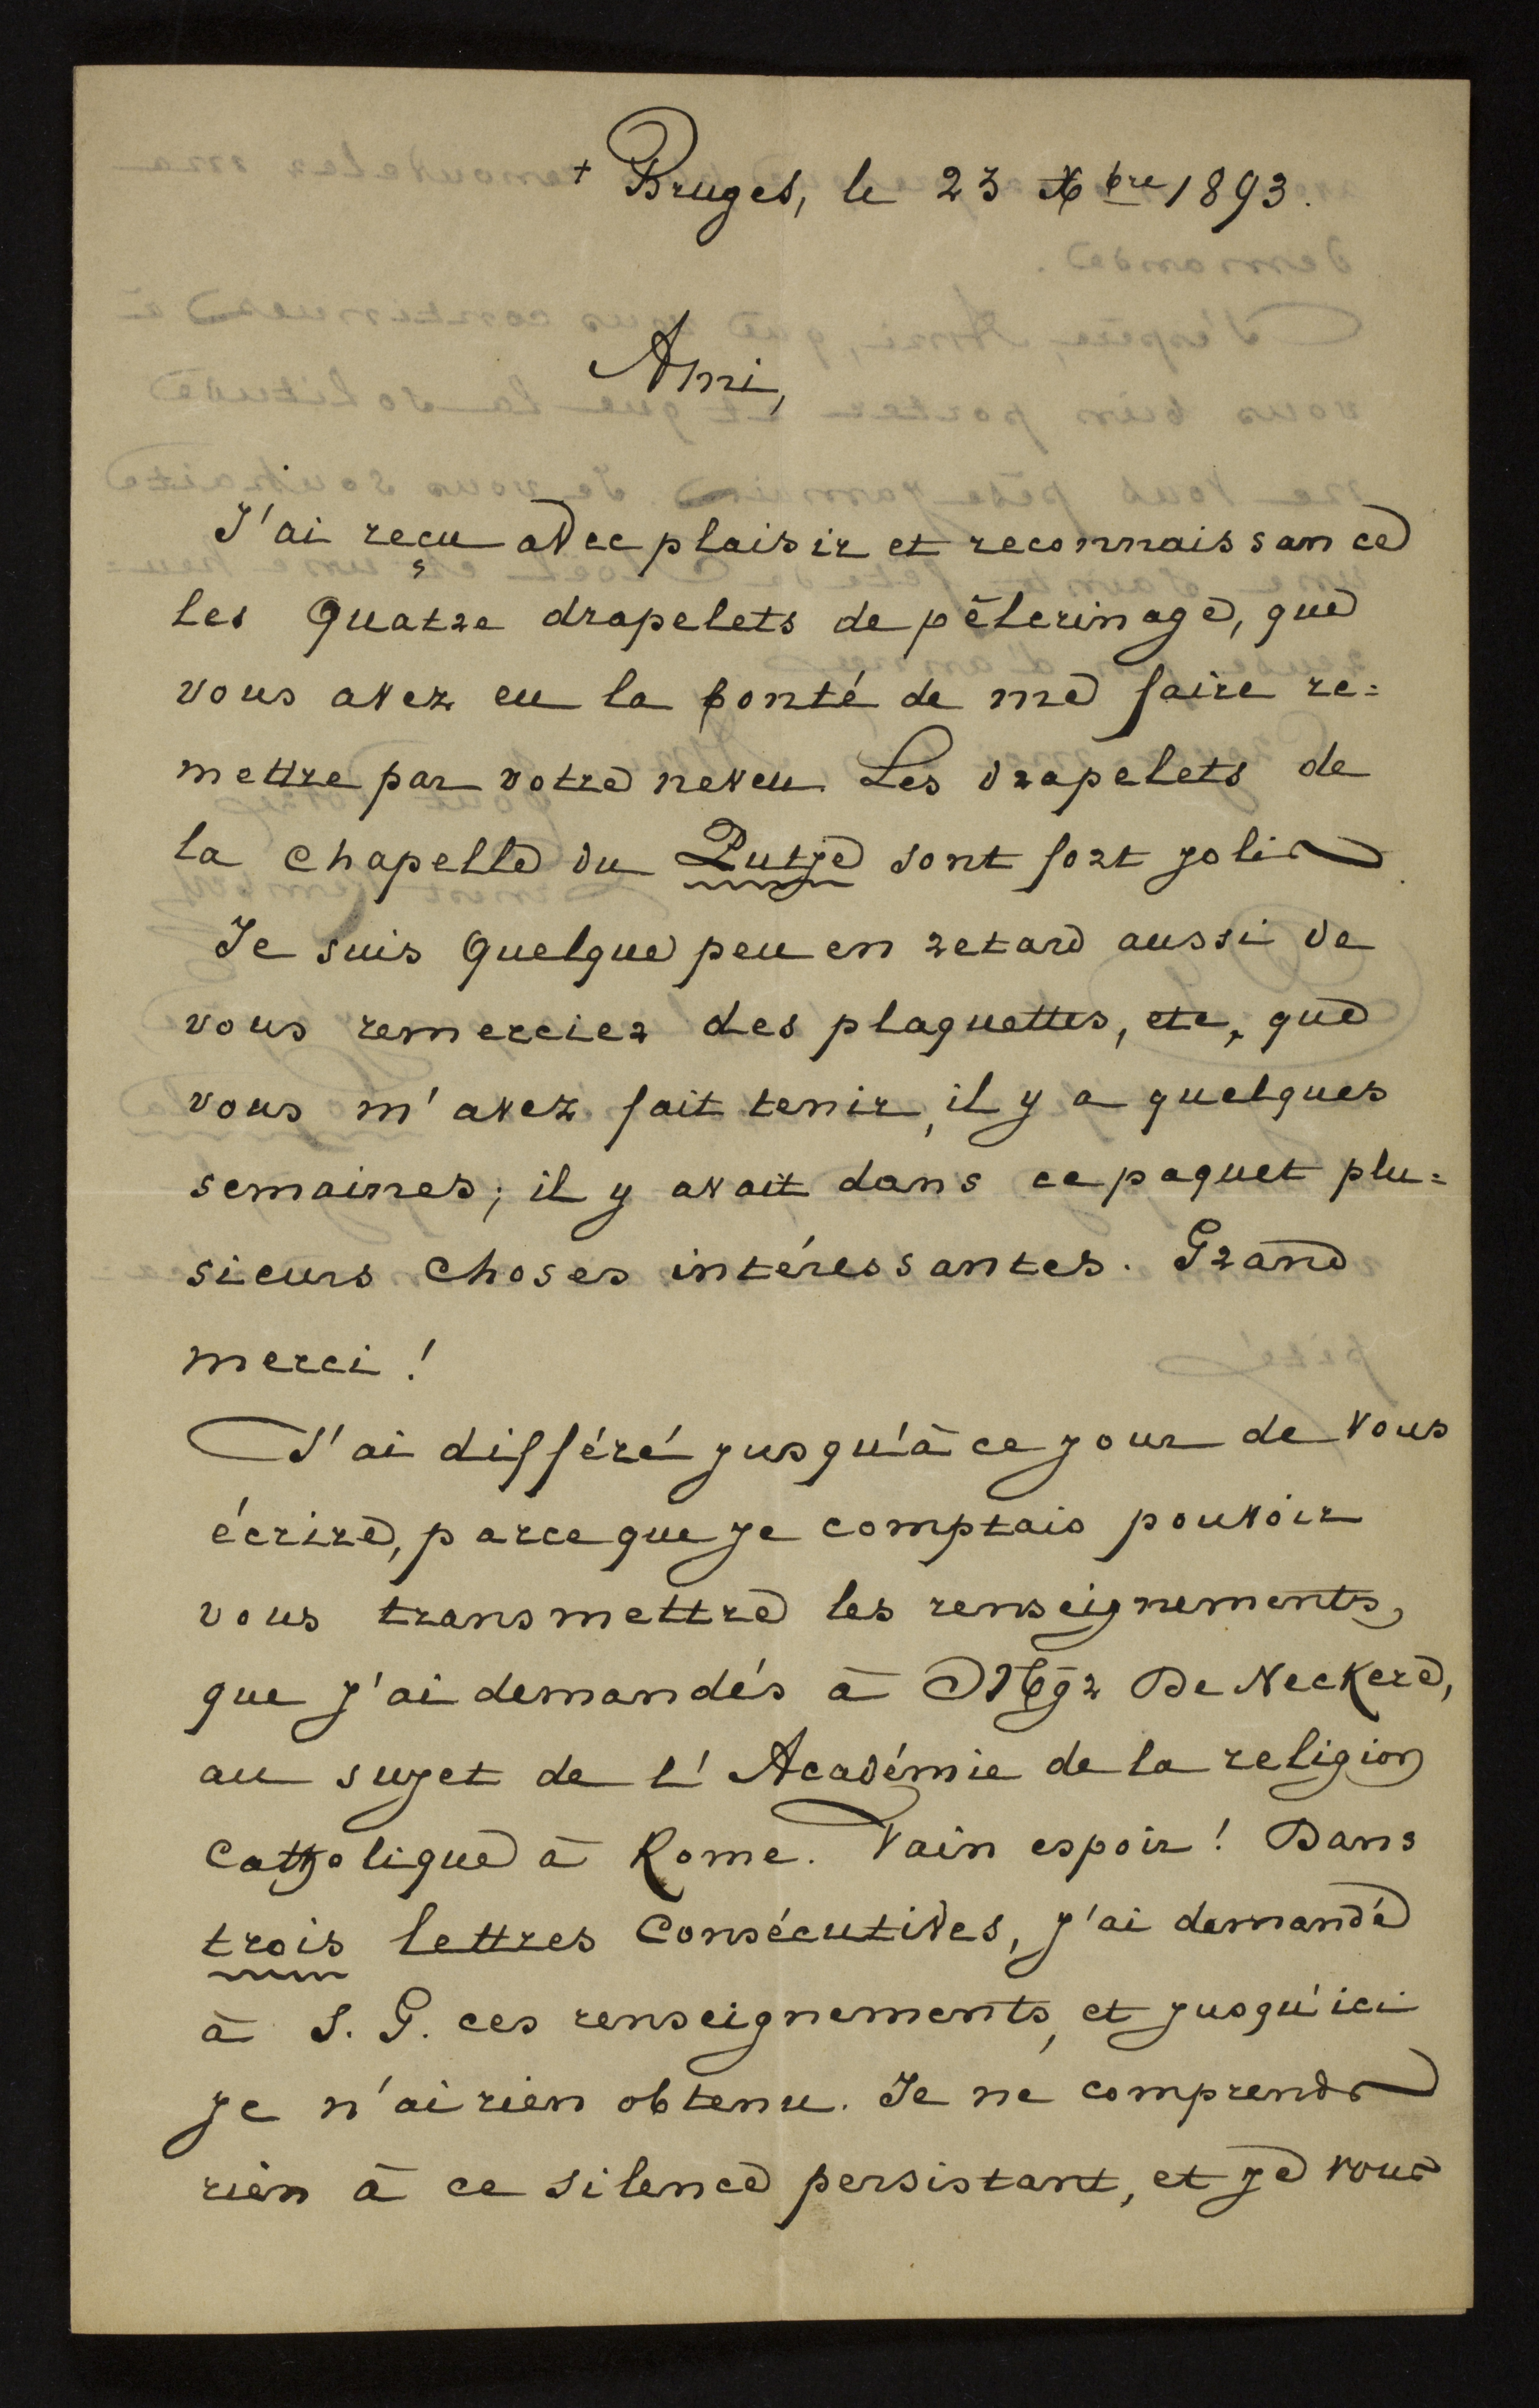 + Bruges, le 23 Xbre 1893.
Ami,
J'ai reçu avec plaisir et reconnaissance
les quatre drapelets de pèlerinage, que
vous avez eu la bonté de me faire re=
mettre par votre neveu. Les drapelets de
la chapelle du Putje sont fort jolis.
Je suis quelque peu en retard aussi de
vous remercier des plaquettes, etc, que
vous m'avez fait tenir, il y a quelques
semaines; il y avait dans ce paquet plu=
sieurs choses intéressantes. Grand
merci!
J'ai différé jusqu'à ce jour de vous
écrire, parce que je comptais pouvoir
vous transmettre les renseignements,
que j'ai demandés à Mgr De Neckere,
au sujet de l'Académie de la religion
catholique à Rome. Vain espoir! Dans
trois lettres consécutives, j'ai demandé
à S. G. ces renseignements, et jusqu'ici
je n'ai rien obtenu. Je ne comprends
rien à ce silence persistant, et je vous